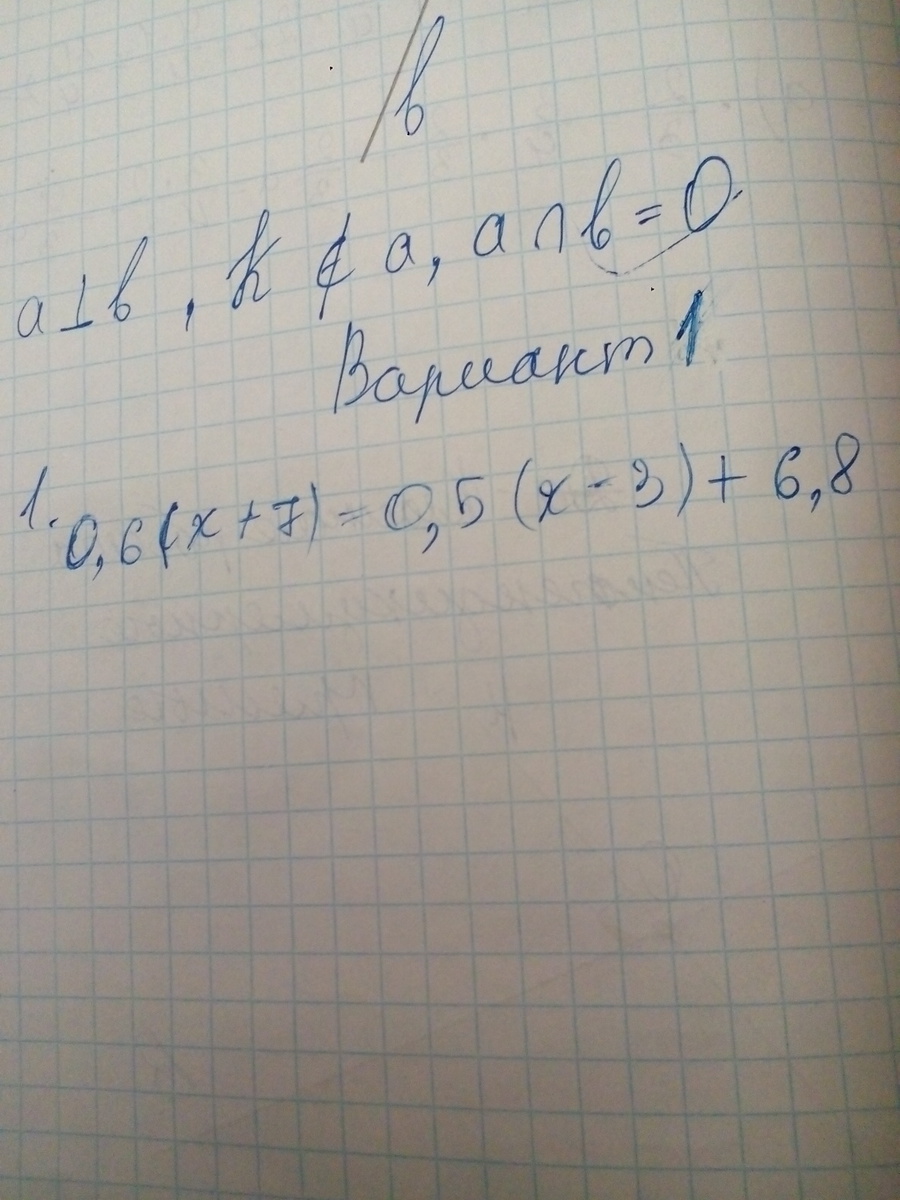 b
a⊥b, K ∉ a, a∩b=O
Вариант 1
1. 0,6(x+7)=0,5(x-3)+6,8